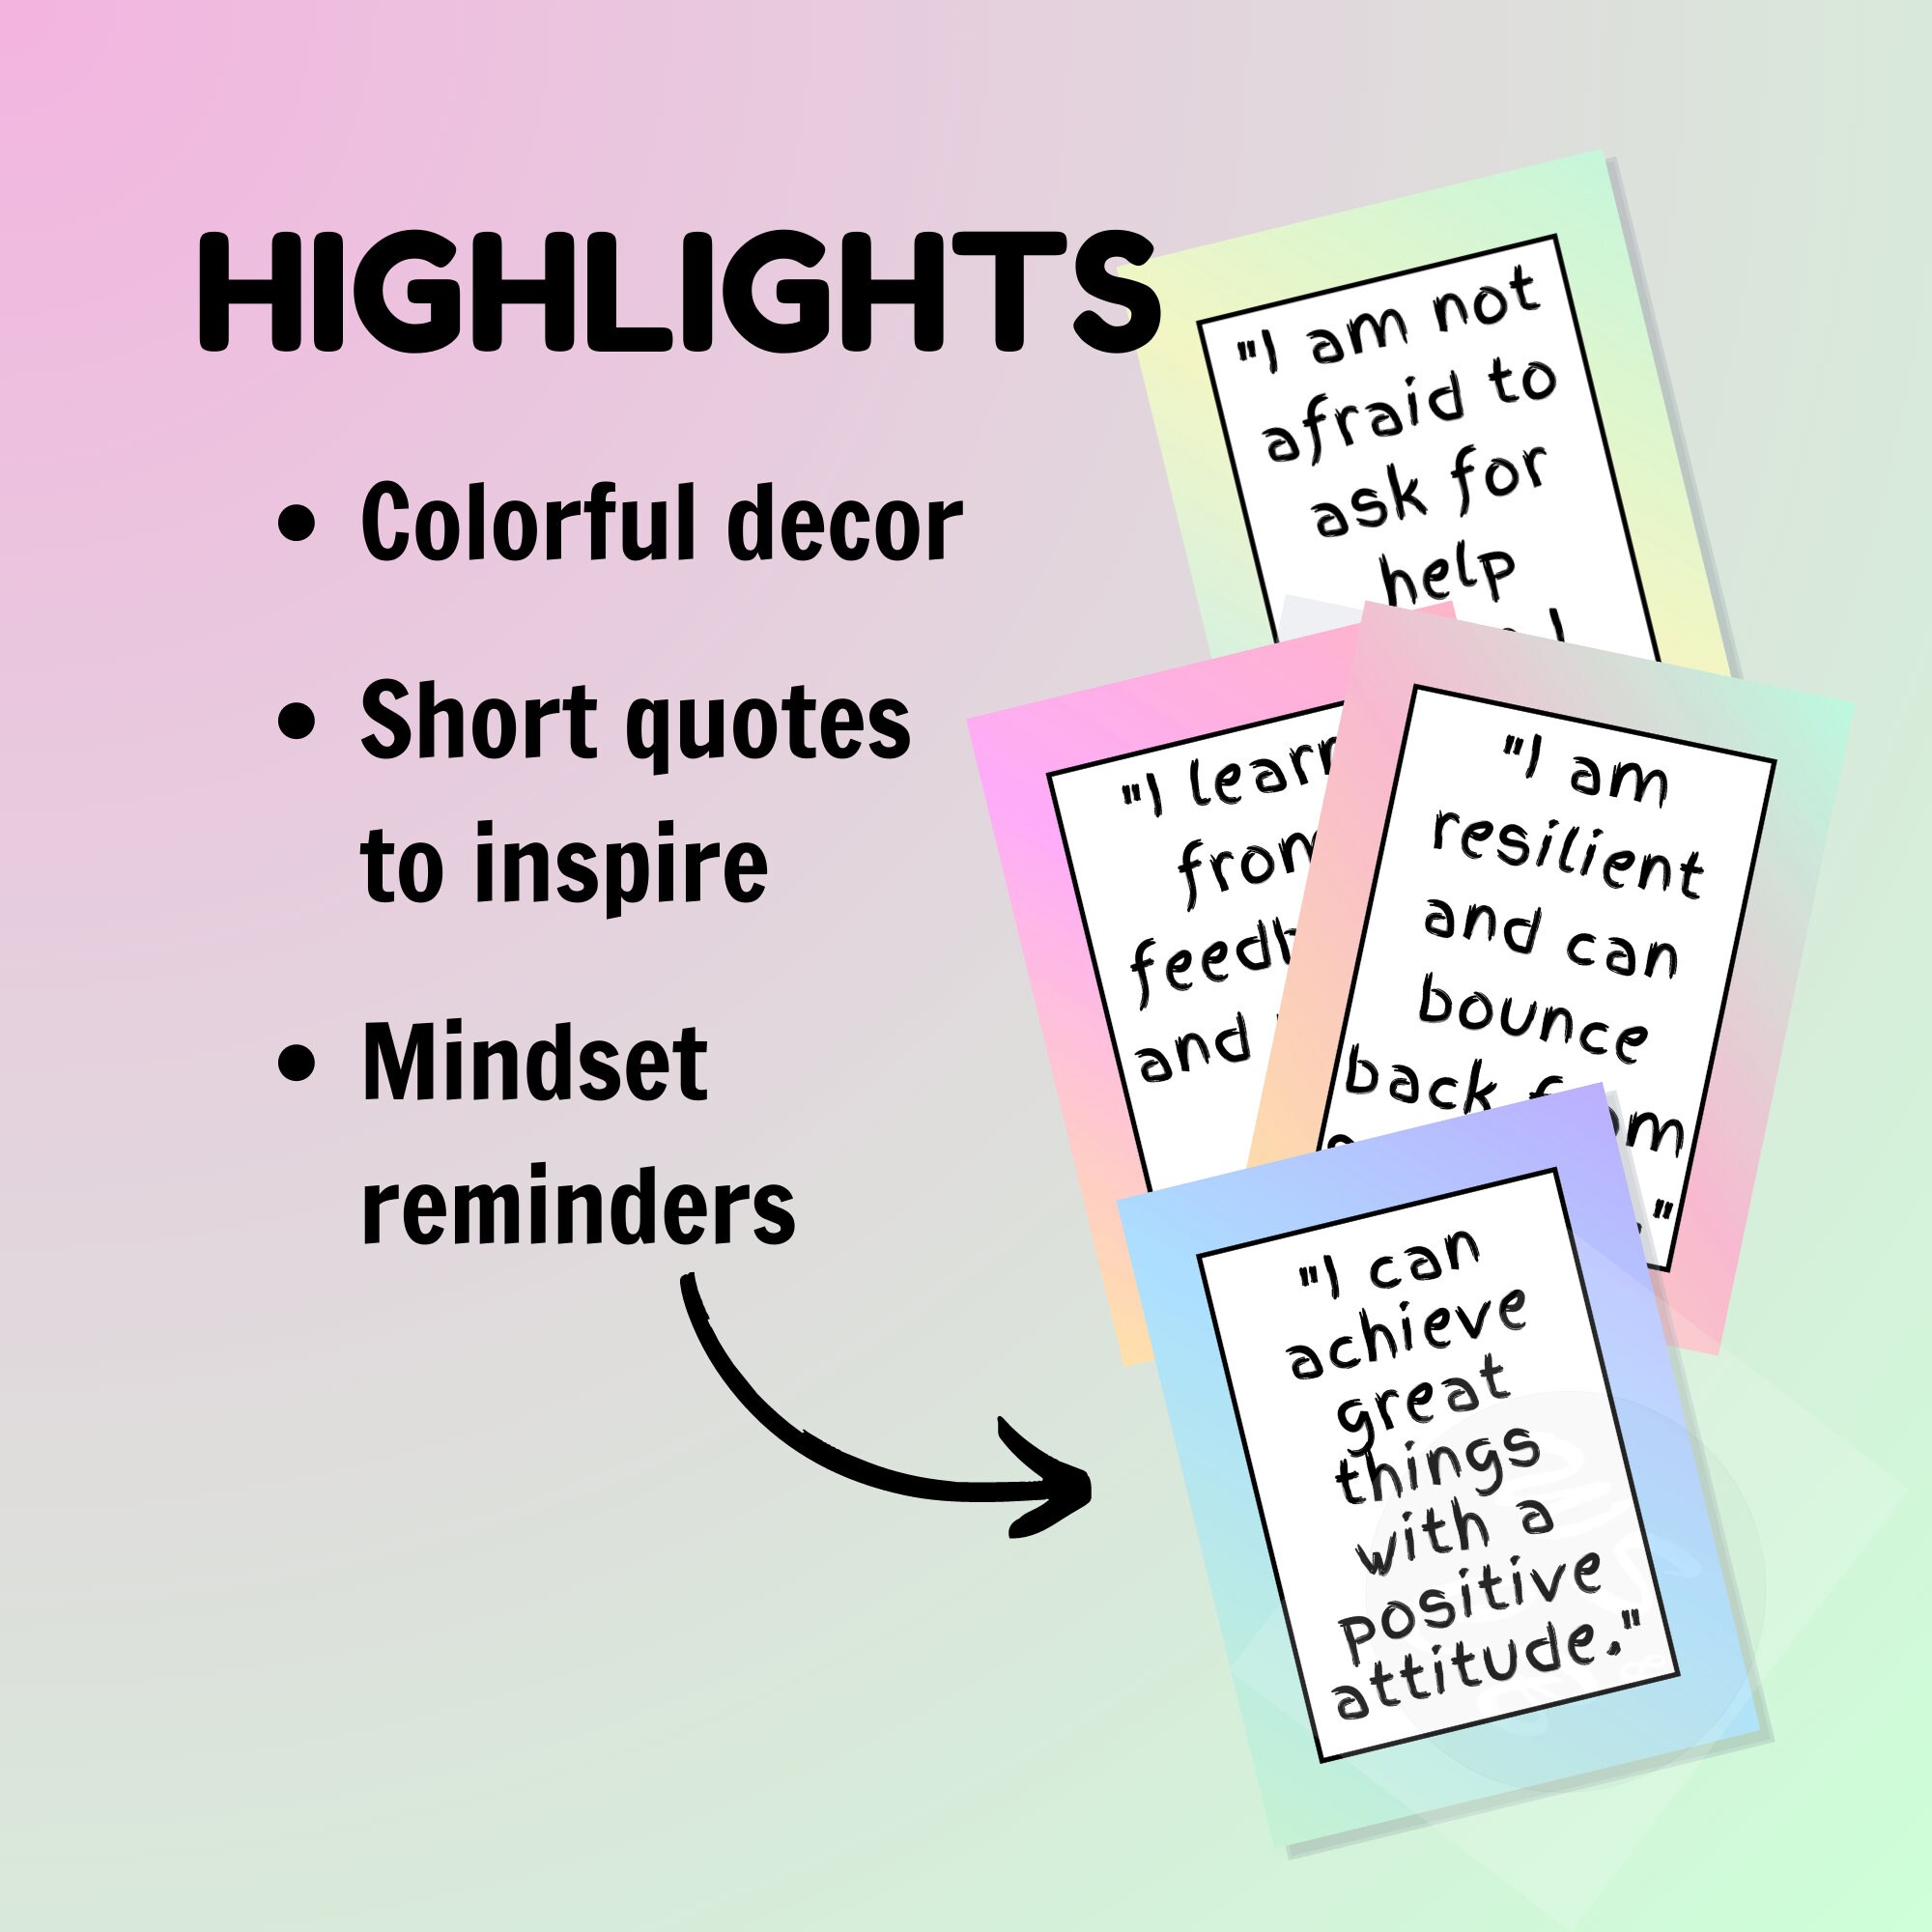 HIGHLIGHTS
• Colorful decor
• Short quotes
to inspire
• Mindset
reminders
"I am not
afraid to
ask for
help
"I learn
from
and
"I am
resilient
and can
bounce
back from
"
"I can
achieve
great
things
with a
positive
attitude."